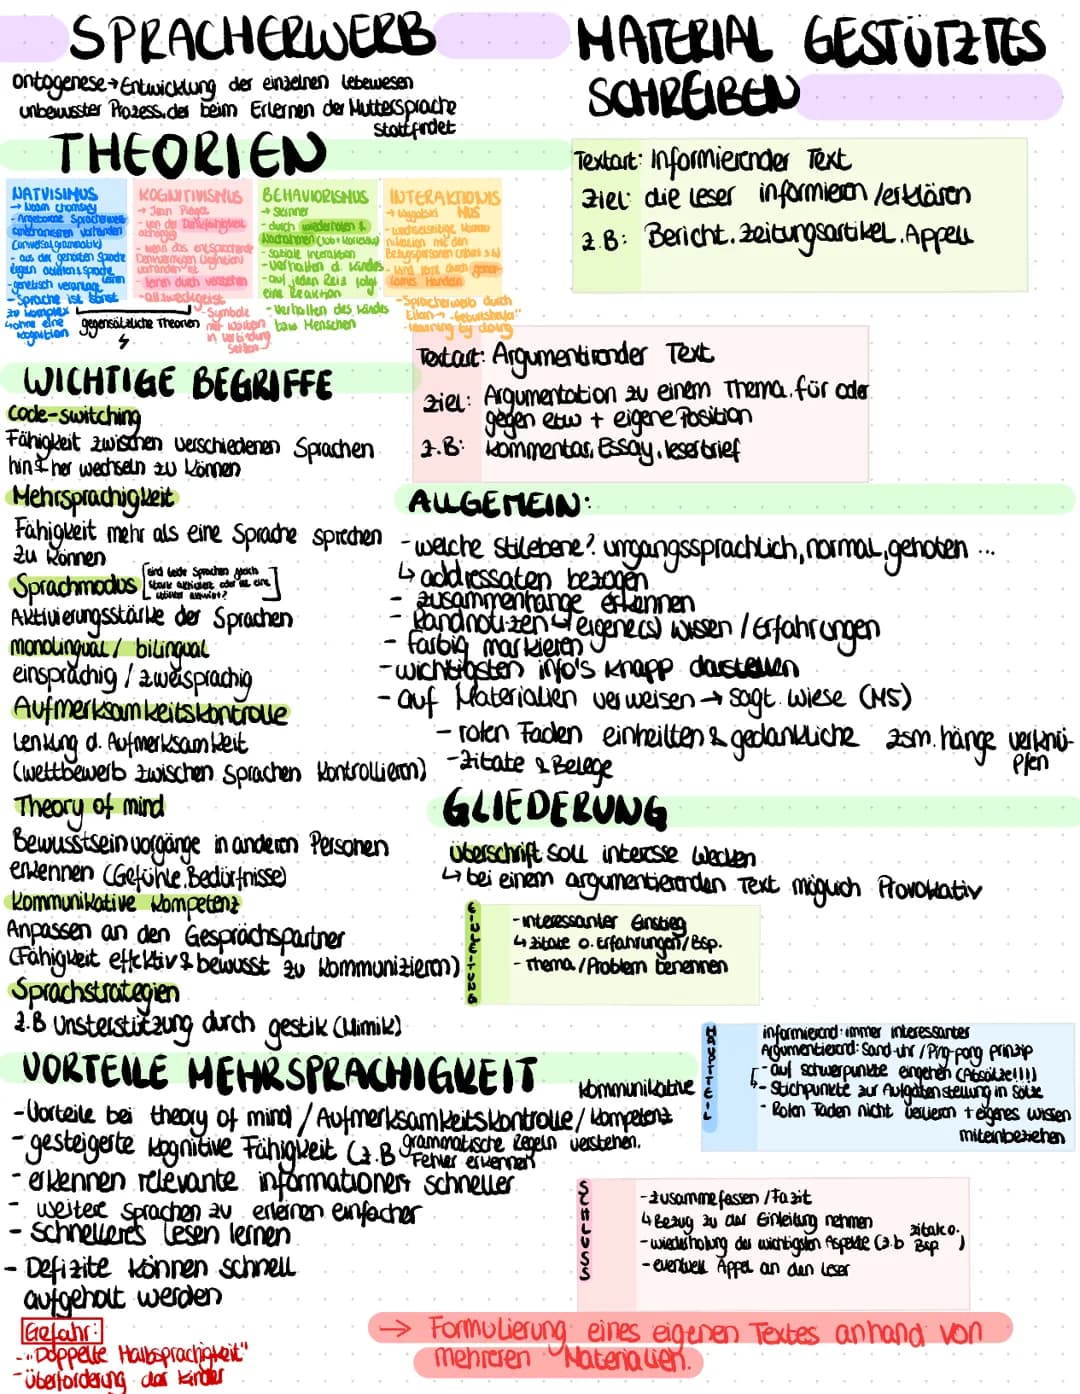 SPRACHERWERB
ontogenese → Entwicklung der einzelnen Lebewesen
unbewusster Prozess, der beim Erlernen der Muttersprache
stattfindet
THEORIEN
NATIVISIMUS
→ Noam Chomsky
- Angeborene Spracherwerb
vorhanden
(universalgrammatik)
- aus der gehörten Sprache
Regeln ableiten & Sprache
lernen
- genetisch veranlagt
- Sprache ist sonst
zu komplex
↳ ohne eine
Kognition
KOGNITIVISMUS
→ Jean Piaget
- von der Denkfähigkeit
abhängig
- wenn das entsprechende
Denkvermögen (Kognition)
vorhanden ist
- lernen durch verstehen
- allzweckgeist
- Symbole
mit Worten
in Verbindung
setzen
gegensätzliche Theorien
BEHAVIORISMUS
→ Skinner
- durch wiederholen &
Nachahmen (Lob + Korrektur)
- soziale Interaktion
- Verhalten d. Kindes
- auf jeden Reiz folgt
eine Reaktion
- Verhalten des Kindes
bzw Menschen
INTERAKTIONIS
MUS
- wechselseitige Kommu
nikation mit den
Bezugspersonen
- Kind lernt durch gemein-
sames Handeln
- Spracherwerb durch
Eltern → "Geburtshelfer"
- learning by doing
WICHTIGE BEGRIFFE
Code-switching
Fähigkeit zwischen verschiedenen Sprachen
hin & her wechseln zu können
Mehrsprachigkeit
Fähigkeit mehr als eine Sprache sprechen
zu können
Sprachmodus [sind beide Sprachen gleich
stark aktiviert oder ist eine
aktiver]
Aktivierungsstärke der Sprachen
monolingual / bilingual
einsprachig / zweisprachig
Aufmerksamkeitskontrolle
Lenkung d. Aufmerksamkeit
(wettbewerb zwischen Sprachen kontrollieren)
Theory of mind
Bewusstseinvorgänge in anderen Personen
erkennen (Gefühle, Bedürfnisse)
Kommunikative Kompetenz
Anpassen an den Gesprächspartner
(Fähigkeit effektiv & bewusst zu kommunizieren)
Sprachstrategien
z.B Unsterstützung durch gestik (Mimik)
VORTEILE MEHRSPRACHIGKEIT
- Vorteile bei theory of mind / Aufmerksamkeitskontrolle / kommunikative Kompetenz
- gesteigerte kognitive Fähigkeit (z.B grammatische Regeln verstehen,
Fehler erkennen
- erkennen relevante informationen schneller
- weitere Sprachen zu erlernen einfacher
- schnelleres Lesen lernen
- Defizite können schnell
aufgeholt werden
Gefahr:
- "Doppelte Halbsprachigkeit"
- Überforderung der Kinder
MATERIAL GESTÜTZTES
SCHREIBEN
Textart: Informierender Text
Ziel: die leser informieren / erklären
z.B: Bericht, Zeitungsartikel, Appell
Textart: Argumentierender Text
Ziel: Argumentation zu einem Thema, für oder
gegen etw + eigene Position
z.B: Kommentar, Essay, leserbrief
ALLGEMEIN:
- welche Stilebene? umgangssprachlich, normal, gehoben ...
↳ addressaten bezogen
- zusammenhänge erkennen
- Randnotizen ↳ eigene(s) wissen / Erfahrungen
- Farbig markieren
- wichtigsten info's knapp darstellen
- auf Materialien verweisen → sagt Wiese (M5)
- roten Faden einhalten & gedankliche zsm.hänge verknü-
pfen
- Zitate & Belege
GLIEDERUNG
Überschrift soll interesse wecken
↳ bei einem argumentierenden Text möglich Provokativ
EINLEITUNG
- interessanter Einstieg
↳ zitate o. Erfahrungen / Bsp.
- Thema / Problem benennen
HAUPTTEIL
informierend: immer interessanter
Argumentierend: Sand-uhr / Ping-pong prinzip
- auf schwerpunkte eingehen (Absätze!!!!)
- Stichpunkte zur Aufgabenstellung in Sätze
- Roten Faden nicht verlieren + eigenes wissen
miteinbeziehen
SCHLUSS
- zusammefassen / Fazit
↳ Bezug zu der Einleitung nehmen
- wiederholung der wichtigsten Aspekte (z.b zitat o. Bsp)
- eventuell Appel an den Leser
→ Formulierung eines eigenen Textes anhand von
mehreren Materialien.